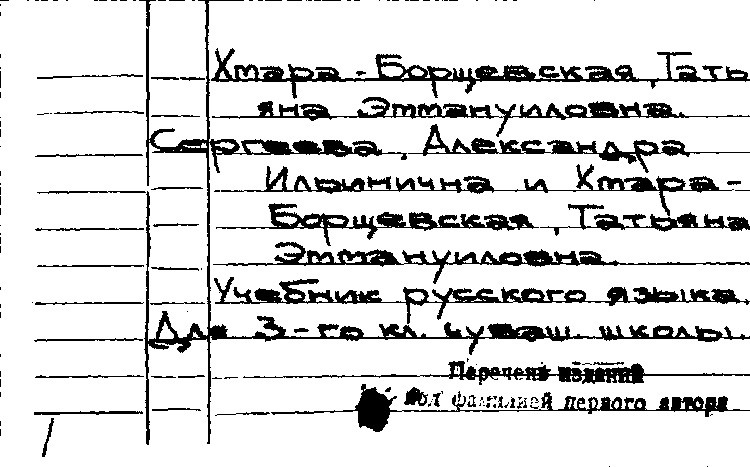 Хмара - Борщевская, Тать
яна Эммануиловна.
Сергеева, Александра
Ильинична и Хмара -
Борщевская, Татьяна
Эммануиловна.
Учебник русского языка.
Для 3-го кл. чуваш. школы.
Перечень изданий
под фамилией первого автора